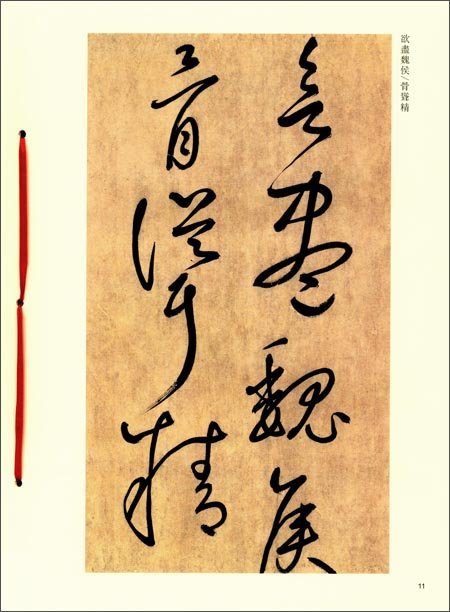 欲盡魏侯/骨聳精
欲盡魏侯
骨聳精
11